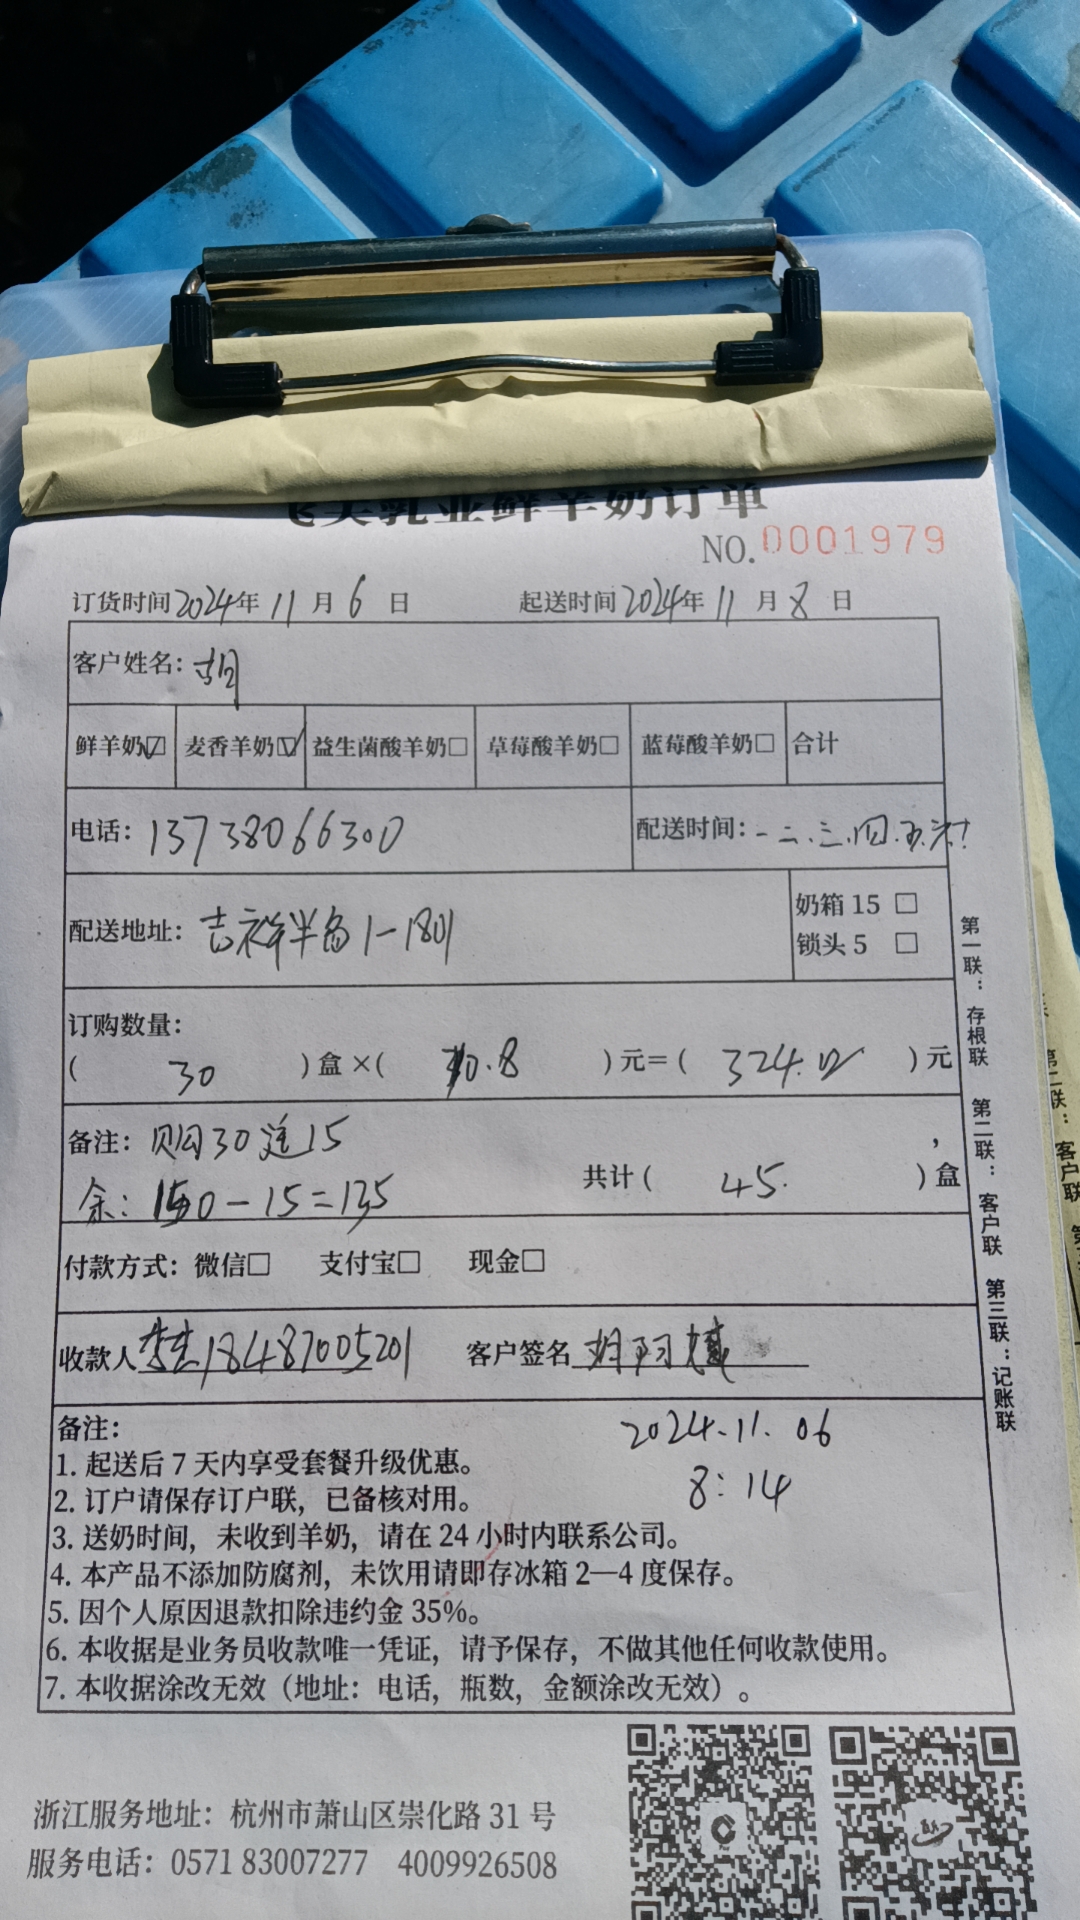 飞天乳业鲜羊奶订单
NO.0001979
订货时间2024年11月6日 起送时间2024年11月8日
客户姓名：胡
鲜羊奶☑ 麦香羊奶☑ 益生菌酸羊奶□ 草莓酸羊奶□ 蓝莓酸羊奶□ 合计
电话：13738066300 配送时间：一.二.三.四.五.六
配送地址：吉祥半岛1-1801 奶箱 15 □
锁头 5 □
订购数量：
( 30 )盒×( 10.8 )元=( 324.00 )元
备注：购30送15
余：150-15=135 共计( 45. )盒
付款方式：微信□ 支付宝□ 现金□
收款人 18487005201 客户签名 胡阿
备注：
2024.11.06
8:14
1. 起送后 7 天内享受套餐升级优惠。
2. 订户请保存订户联，已备核对用。
3. 送奶时间，未收到羊奶，请在 24 小时内联系公司。
4. 本产品不添加防腐剂，未饮用请即存冰箱 2—4 度保存。
5. 因个人原因退款扣除违约金 35%。
6. 本收据是业务员收款唯一凭证，请予保存，不做其他任何收款使用。
7. 本收据涂改无效（地址：电话，瓶数，金额涂改无效）。
第一联：存根联 第二联：客户联 第三联：记账联
浙江服务地址：杭州市萧山区崇化路 31 号
服务电话：0571 83007277 4009926508